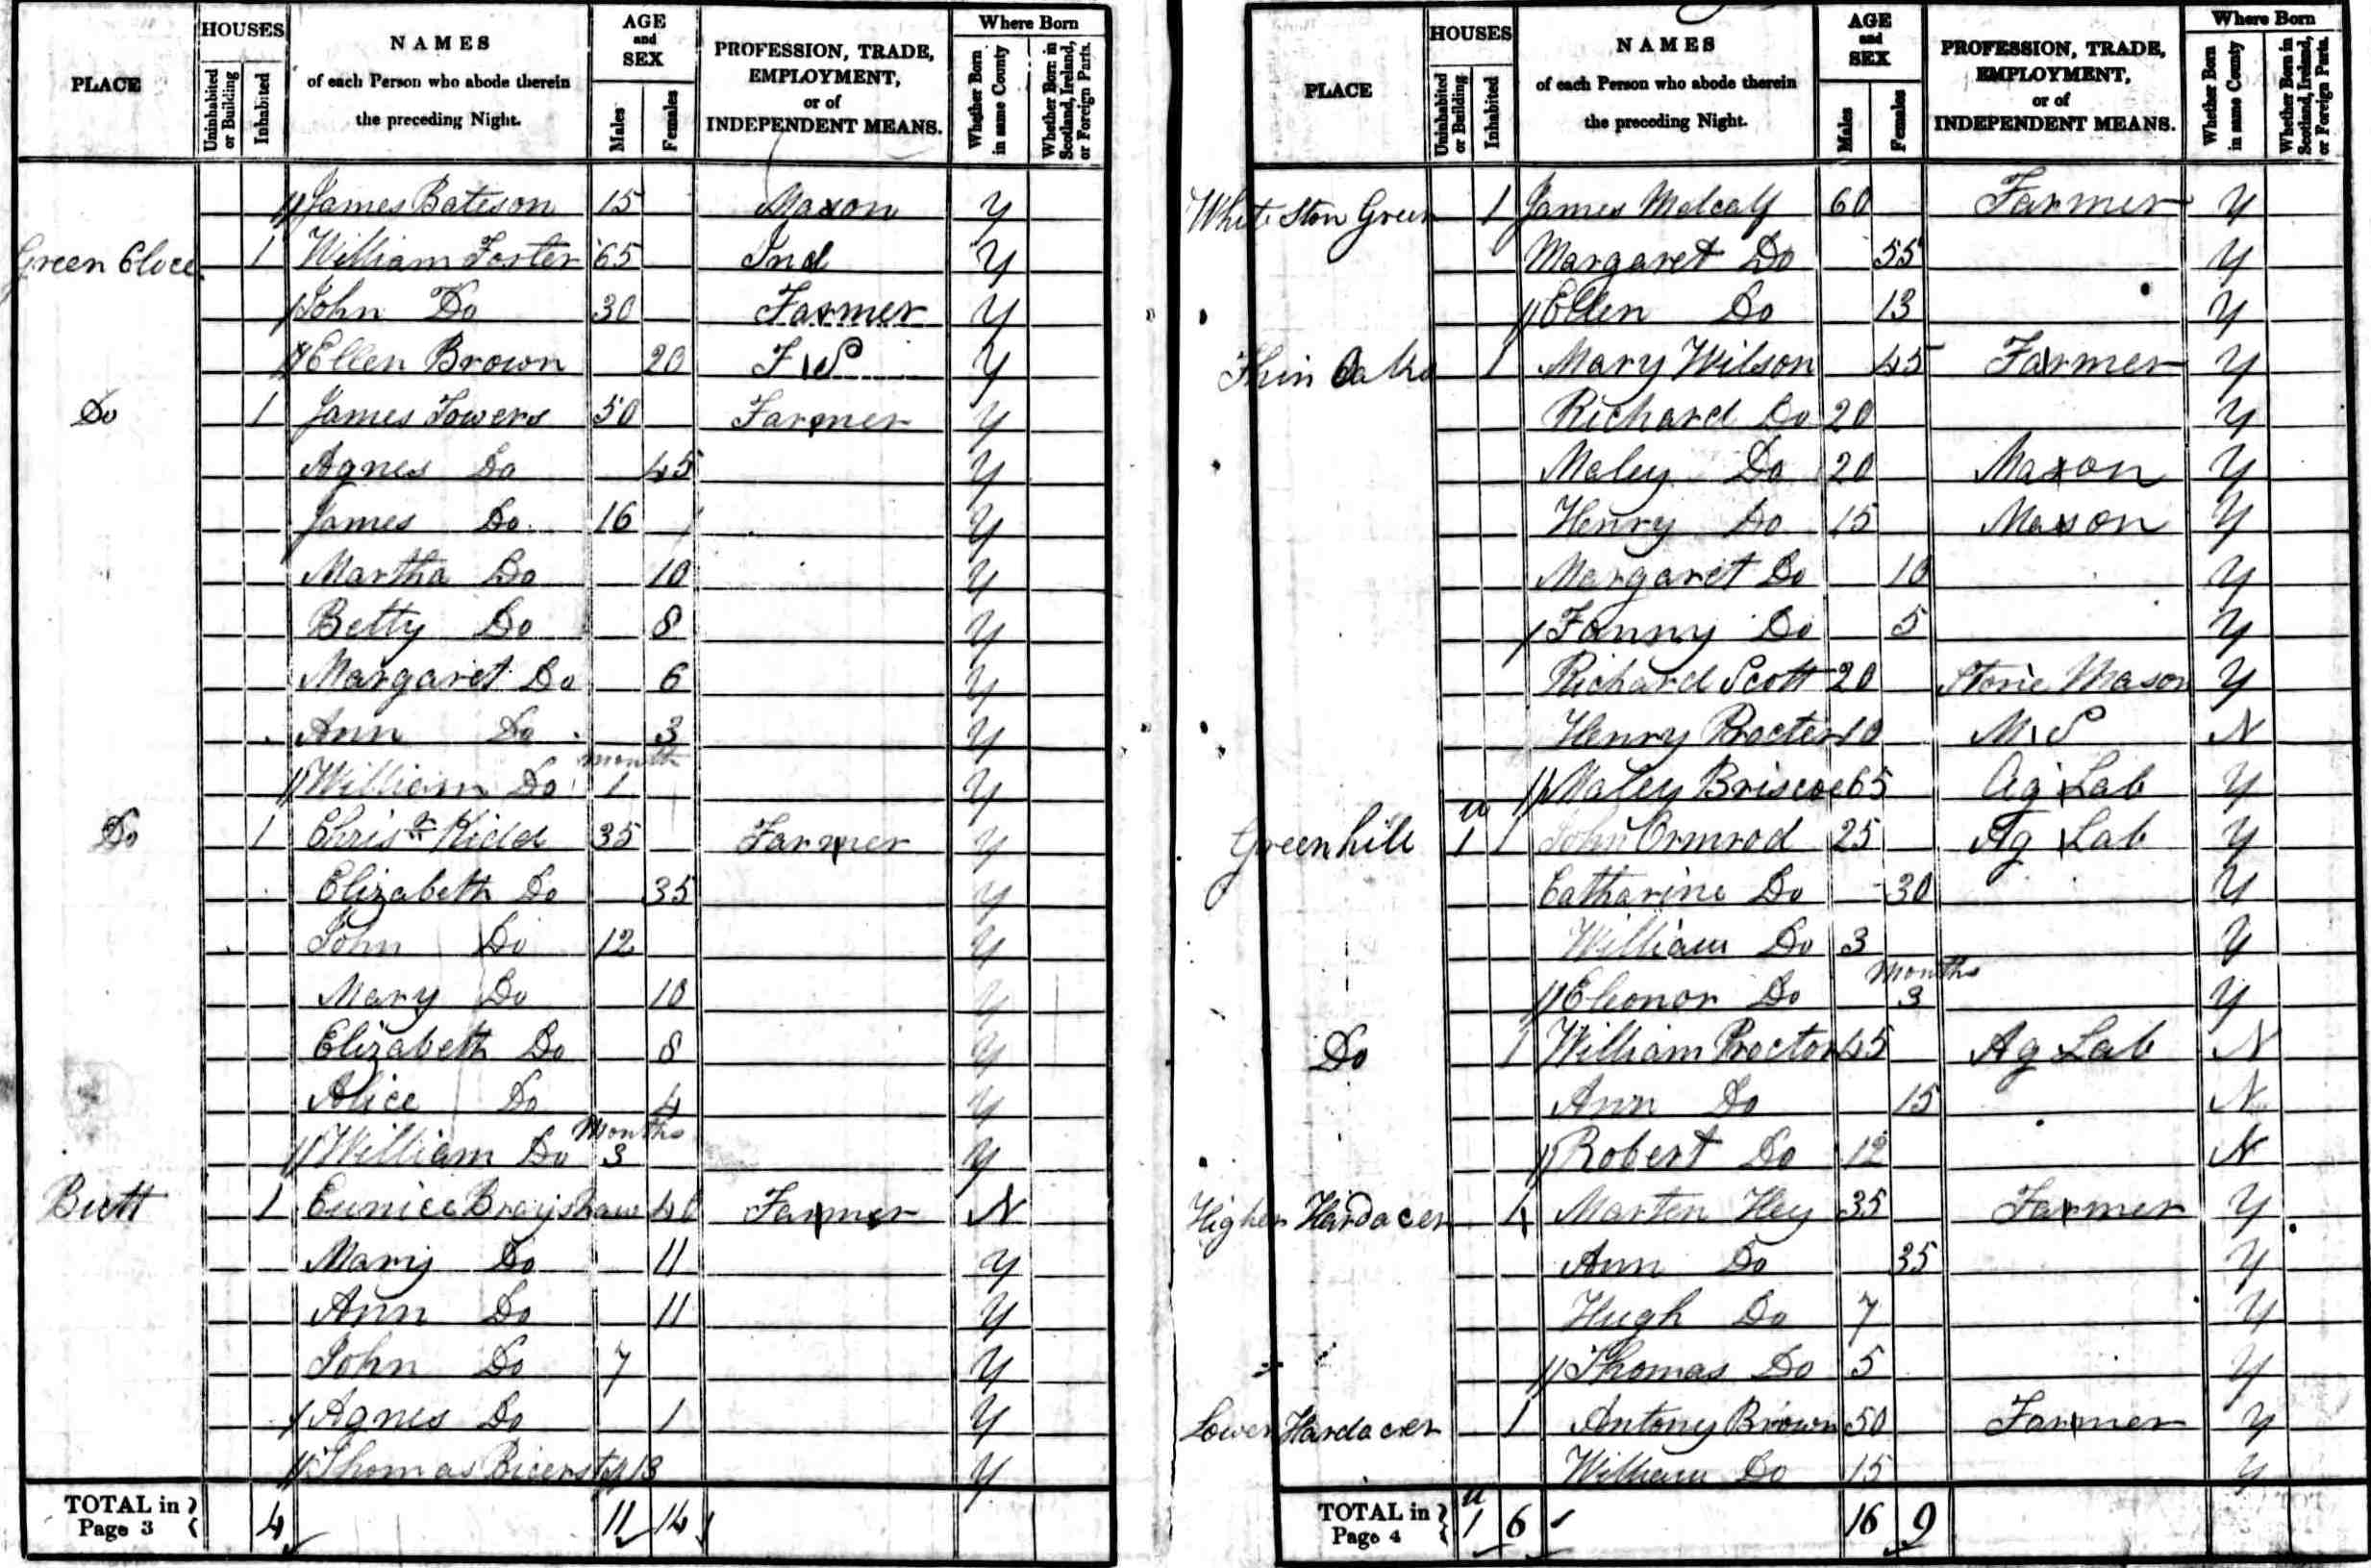 PLACE
HOUSES
Uninhabited or Building
Inhabited
NAMES
of each Person who abode therein
the preceding Night.
AGE
and
SEX
Males
Females
PROFESSION, TRADE,
EMPLOYMENT,
or of
INDEPENDENT MEANS.
Where Born
Whether Born in same County
Whether Born in Scotland, Ireland, or Foreign Parts.
James Bateson 15 Mason Y
Green Close 1 William Foster 65 Ind Y
John Do 30 Farmer Y
Ellen Brown 20 F S Y
Do 1 James Towers 50 Farmer Y
Agnes Do 45 Y
James Do 16 Y
Martha Do 10 Y
Betty Do 8 Y
Margaret Do 6 Y
Ann Do 3 Y
month
William Do 1 Y
Do 1 Chrisr Kidd 35 Farmer Y
Elizabeth Do 35 Y
John Do 12 Y
Mary Do 10 Y
Elizabeth Do 8 Y
Alice Do 4 Y
Months
William Do 3 Y
Butt 1 Eunice Brayshaw 40 Farmer N
Mary Do 11 Y
Ann Do 11 Y
John Do 7 Y
Agnes Do 1 Y
Thomas 13 Y
TOTAL in Page 3 4 11 14
PLACE
HOUSES
Uninhabited or Building
Inhabited
NAMES
of each Person who abode therein
the preceding Night.
AGE
and
SEX
Males
Females
PROFESSION, TRADE,
EMPLOYMENT,
or of
INDEPENDENT MEANS.
Where Born
Whether Born in same County
Whether Born in Scotland, Ireland, or Foreign Parts.
White Ston Green 1 James Metcalf 60 Farmer Y
Margaret Do 55 Y
Ellen Do 13 Y
Thin Oaks 1 Mary Wilson 45 Farmer Y
Richard Do 20 Y
Maley Do 20 Mason Y
Henry Do 15 Mason Y
Margaret Do 10 Y
Fanny Do 5 Y
Richard Scott 20 Stone Mason Y
Henry Procter 10 M S N
Maley Briscoe 65 Ag Lab Y
u
Greenhill 1 1 John Ormrod 25 Ag Lab Y
Catharine Do 30 Y
William Do 3 Y
Months
Eleonor Do 3 Y
Do 1 William Proctor 45 Ag Lab N
Ann Do 15 N
Robert Do 12 N
Higher Hardacer 1 Marten Hey 35 Farmer Y
Ann Do 35 Y
Hugh Do 7 Y
Thomas Do 5 Y
Lower Hardacer 1 Antony Brown 50 Farmer Y
William Do 15 Y
u
TOTAL in Page 4 1 6 16 9